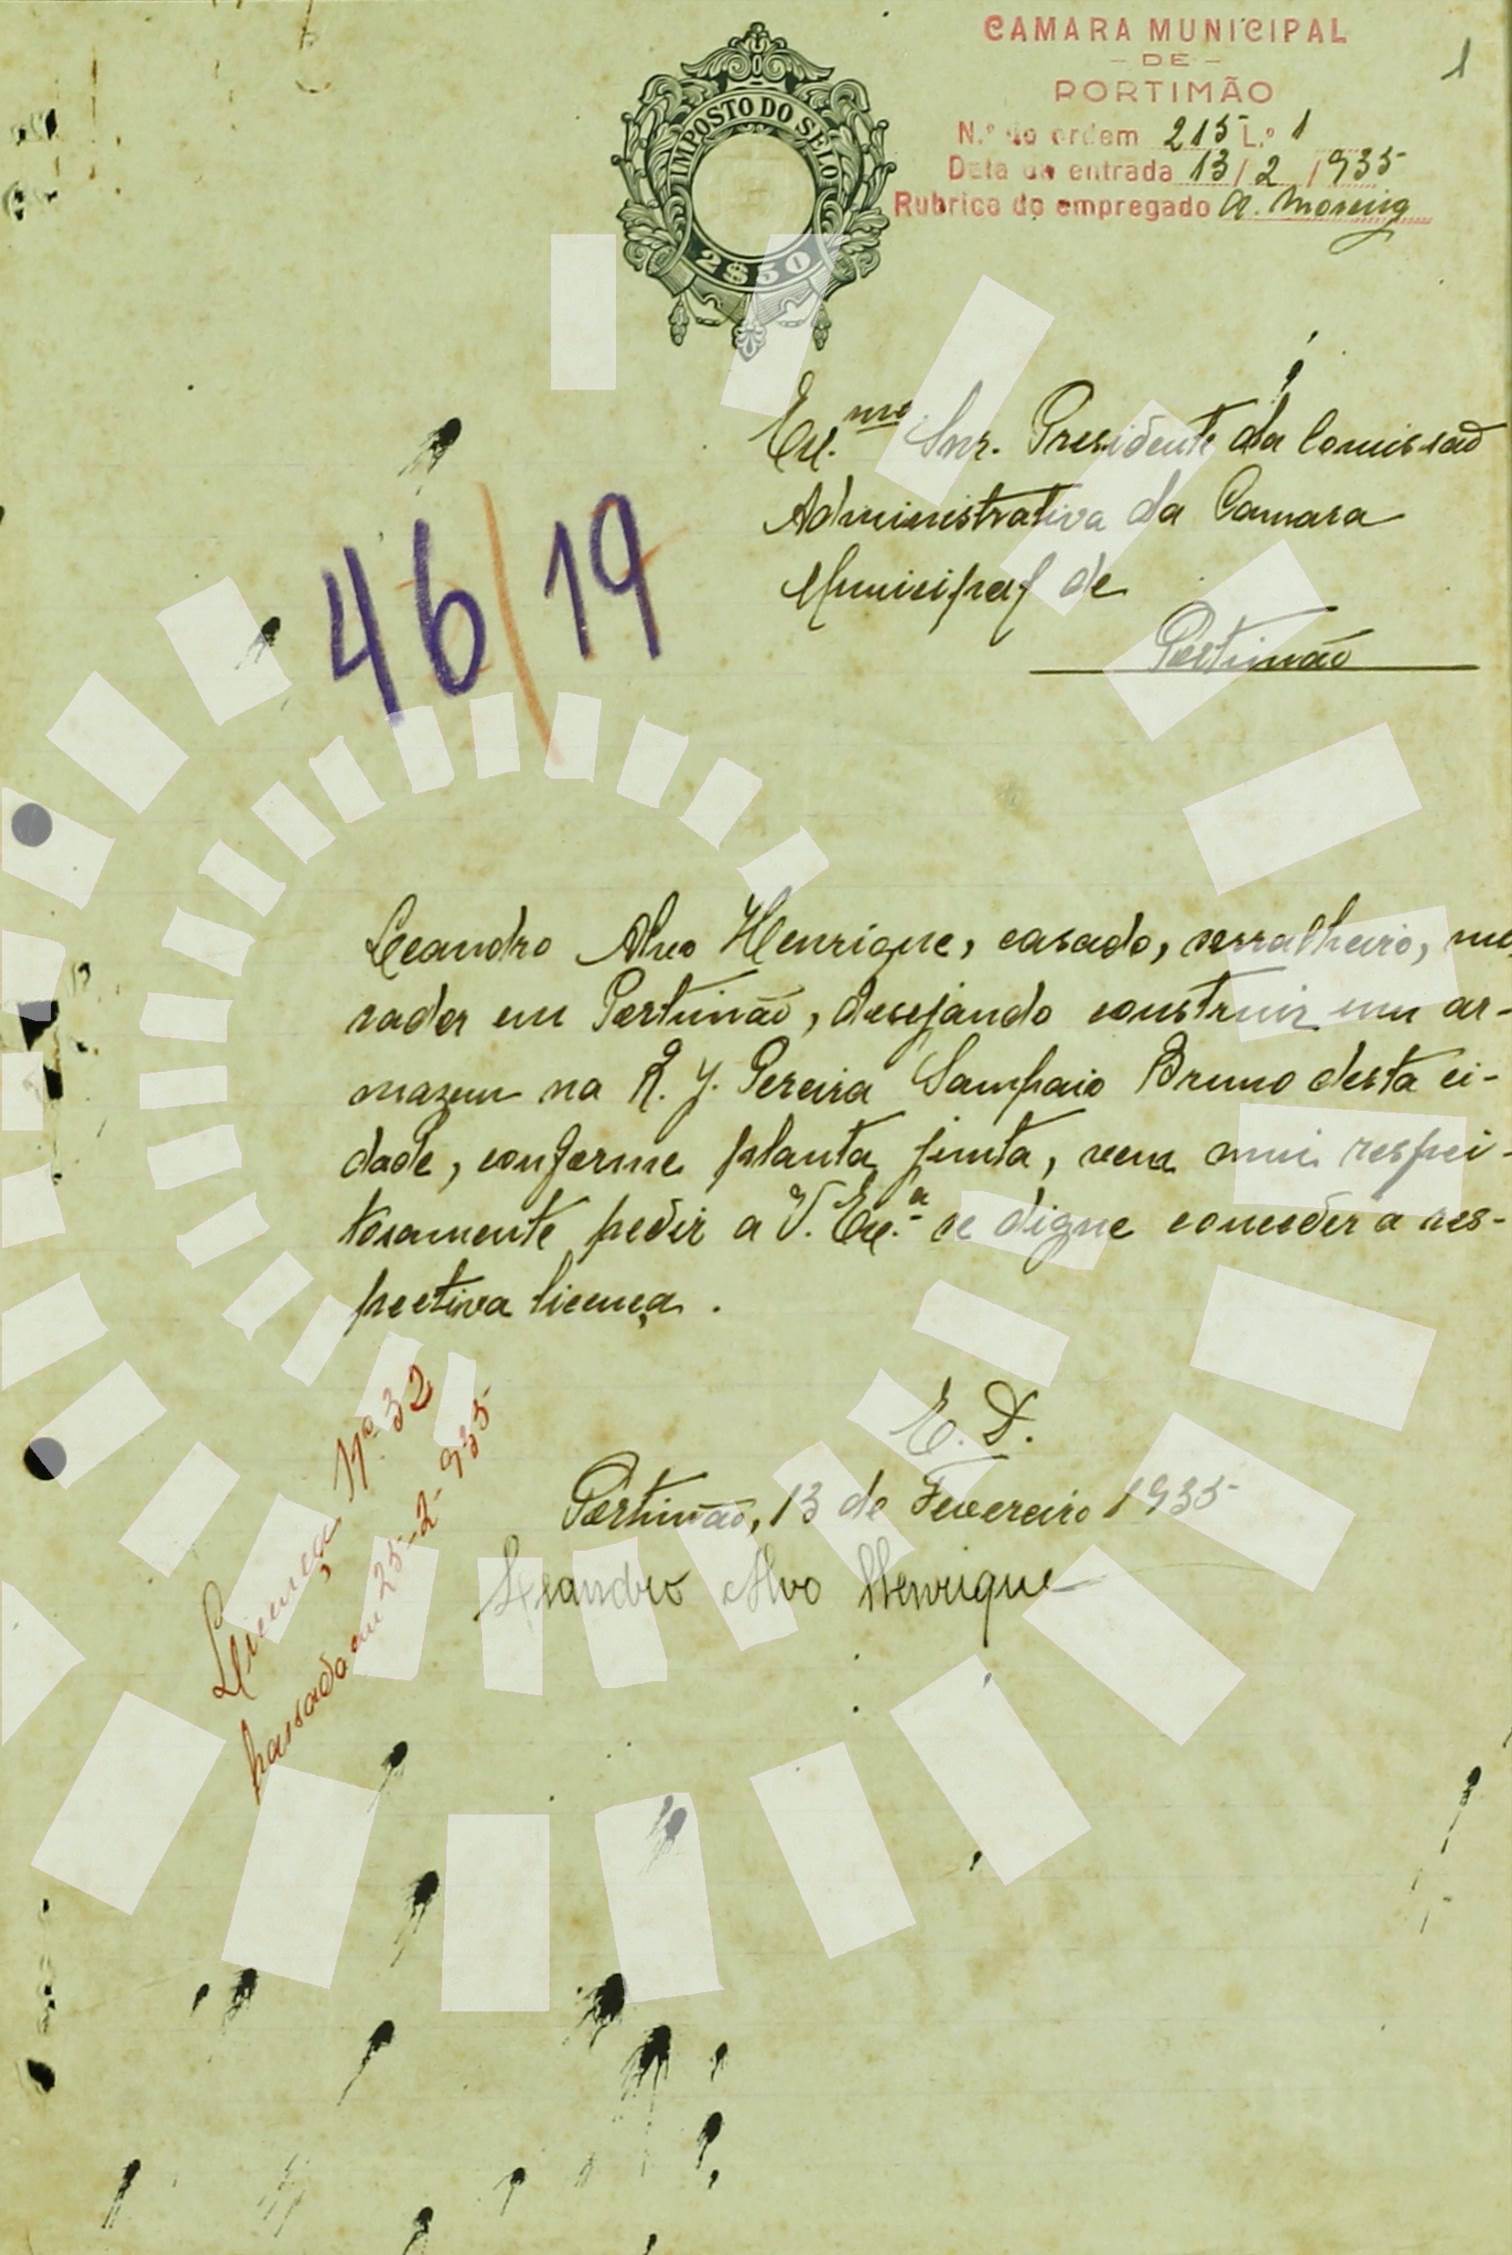 CAMARA MUNICIPAL
- DE -
PORTIMÃO
N.º de ordem 215 L.º 1
Data da entrada 13/2/935
Rubrica do empregado A. Moreira
1
IMPOSTO DO SELO
2$50
Exc.mo Snr. Presidente da Comissão
Administrativa da Camara
Municipal de
Portimão
46/19
Leandro Alvo Henrique, casado, serralheiro, mo-
rador em Portimão, desejando construir um ar-
mazem na R. J. Pereira Sampaio Bruno desta ci-
dade, conforme planta junta, vem mui respei-
tosamente pedir a V. Exc.a se digne conceder a res-
pectiva licença.
E. D.
Portimão, 13 de Fevereiro 1935
Leandro Alvo Henrique
Licença nº 32
passada em 25-2-935